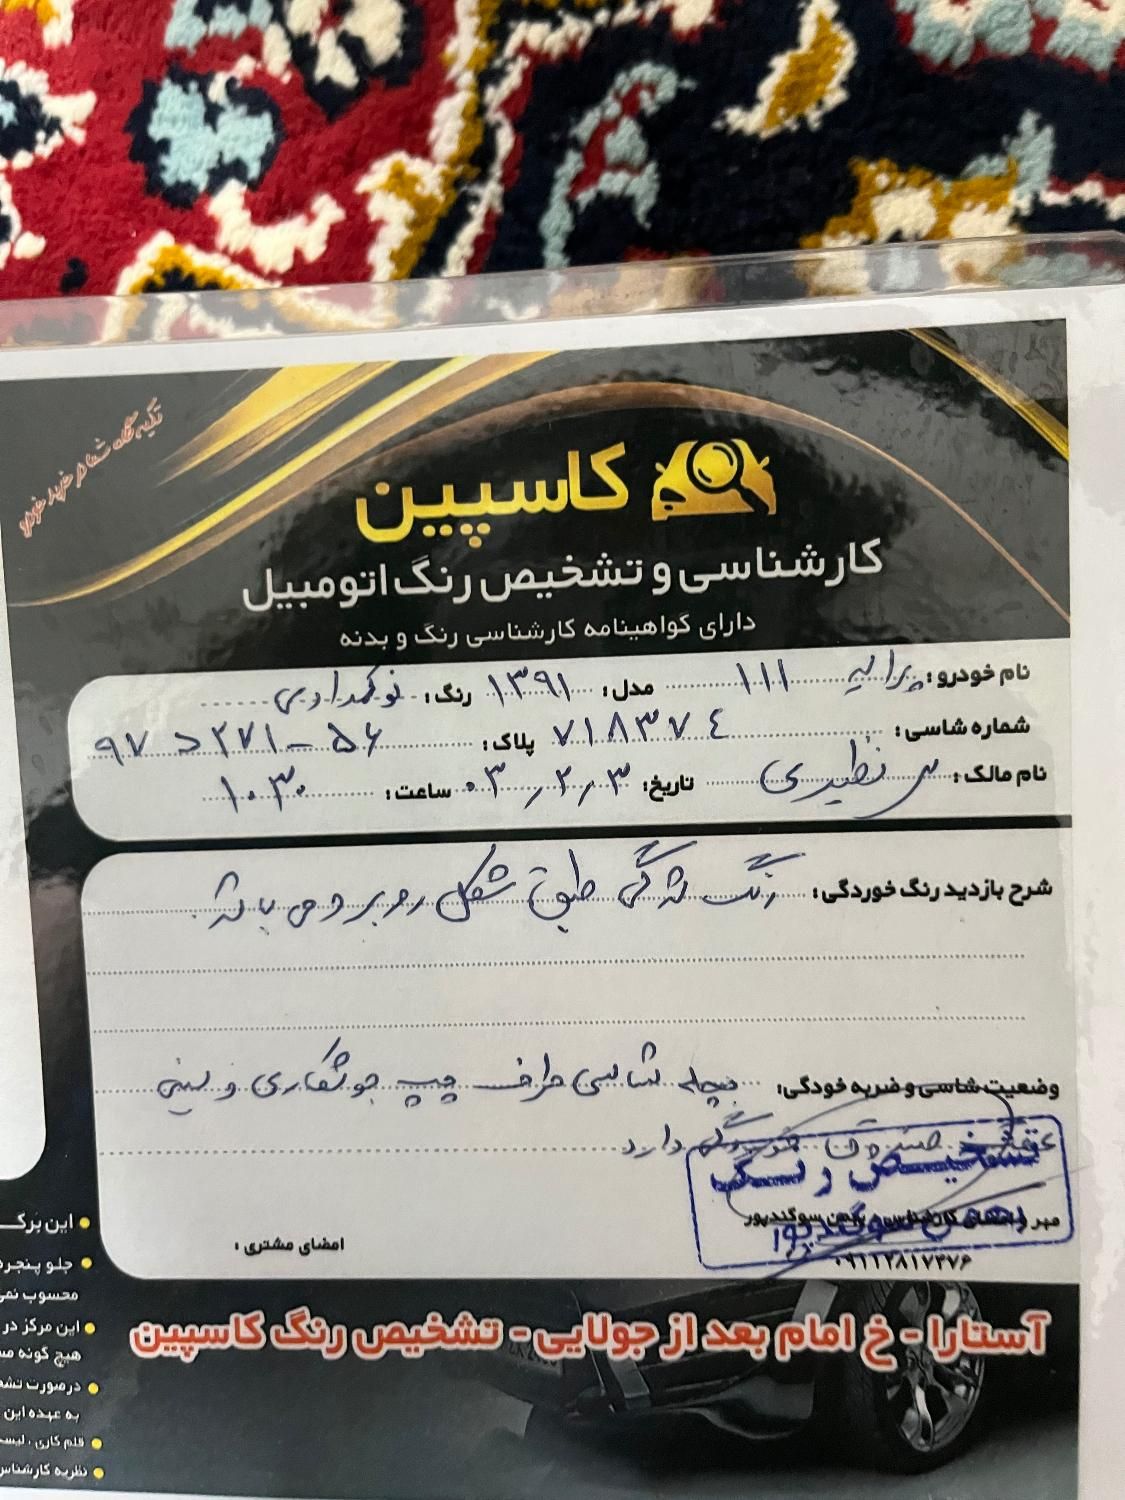 تکیه گاه شما در خرید خودرو
کاسپین
کارشناسی و تشخیص رنگ اتومبیل
دارای گواهینامه کارشناسی رنگ و بدنه
نام خودرو: پراید ۱۱۱ مدل: ۱۳۹۱ رنگ: نوکمدادی
شماره شاسی: ۷۱۸۳۷٤ پلاک: ۵۶ - ۲۷۱ د ۹۷
نام مالک: نظیری تاریخ: ۰۳٫۲٫۳ ساعت: ۱۰:۳۰
شرح بازدید رنگ خوردگی: رنگ شدگی طبق شکل روبرو می باشد
وضعیت شاسی و ضربه خودگی: شاسی طرف چپ جوشکاری و سینی
عقب صندوق خوردگی دارد
تشخیص رنگ
مهر و امضای کارشناس: بهمن سوگندپور
بهمن سوگندپور
امضای مشتری:
۰۹۱۱۲۸۱۷۴۷۶
آستارا - خ امام بعد از جولایی - تشخیص رنگ کاسپین
این برگ
جلو پنجره
محسوب نمی
این مرکز در
هیچ گونه
درصورت
به عهده این
قلم کاری ،
نظریه کارشناس